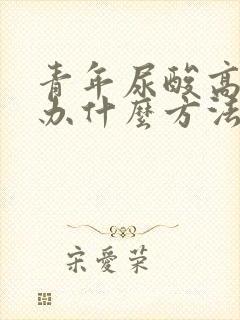 青年尿酸高
办什麼方法
宋愛荣